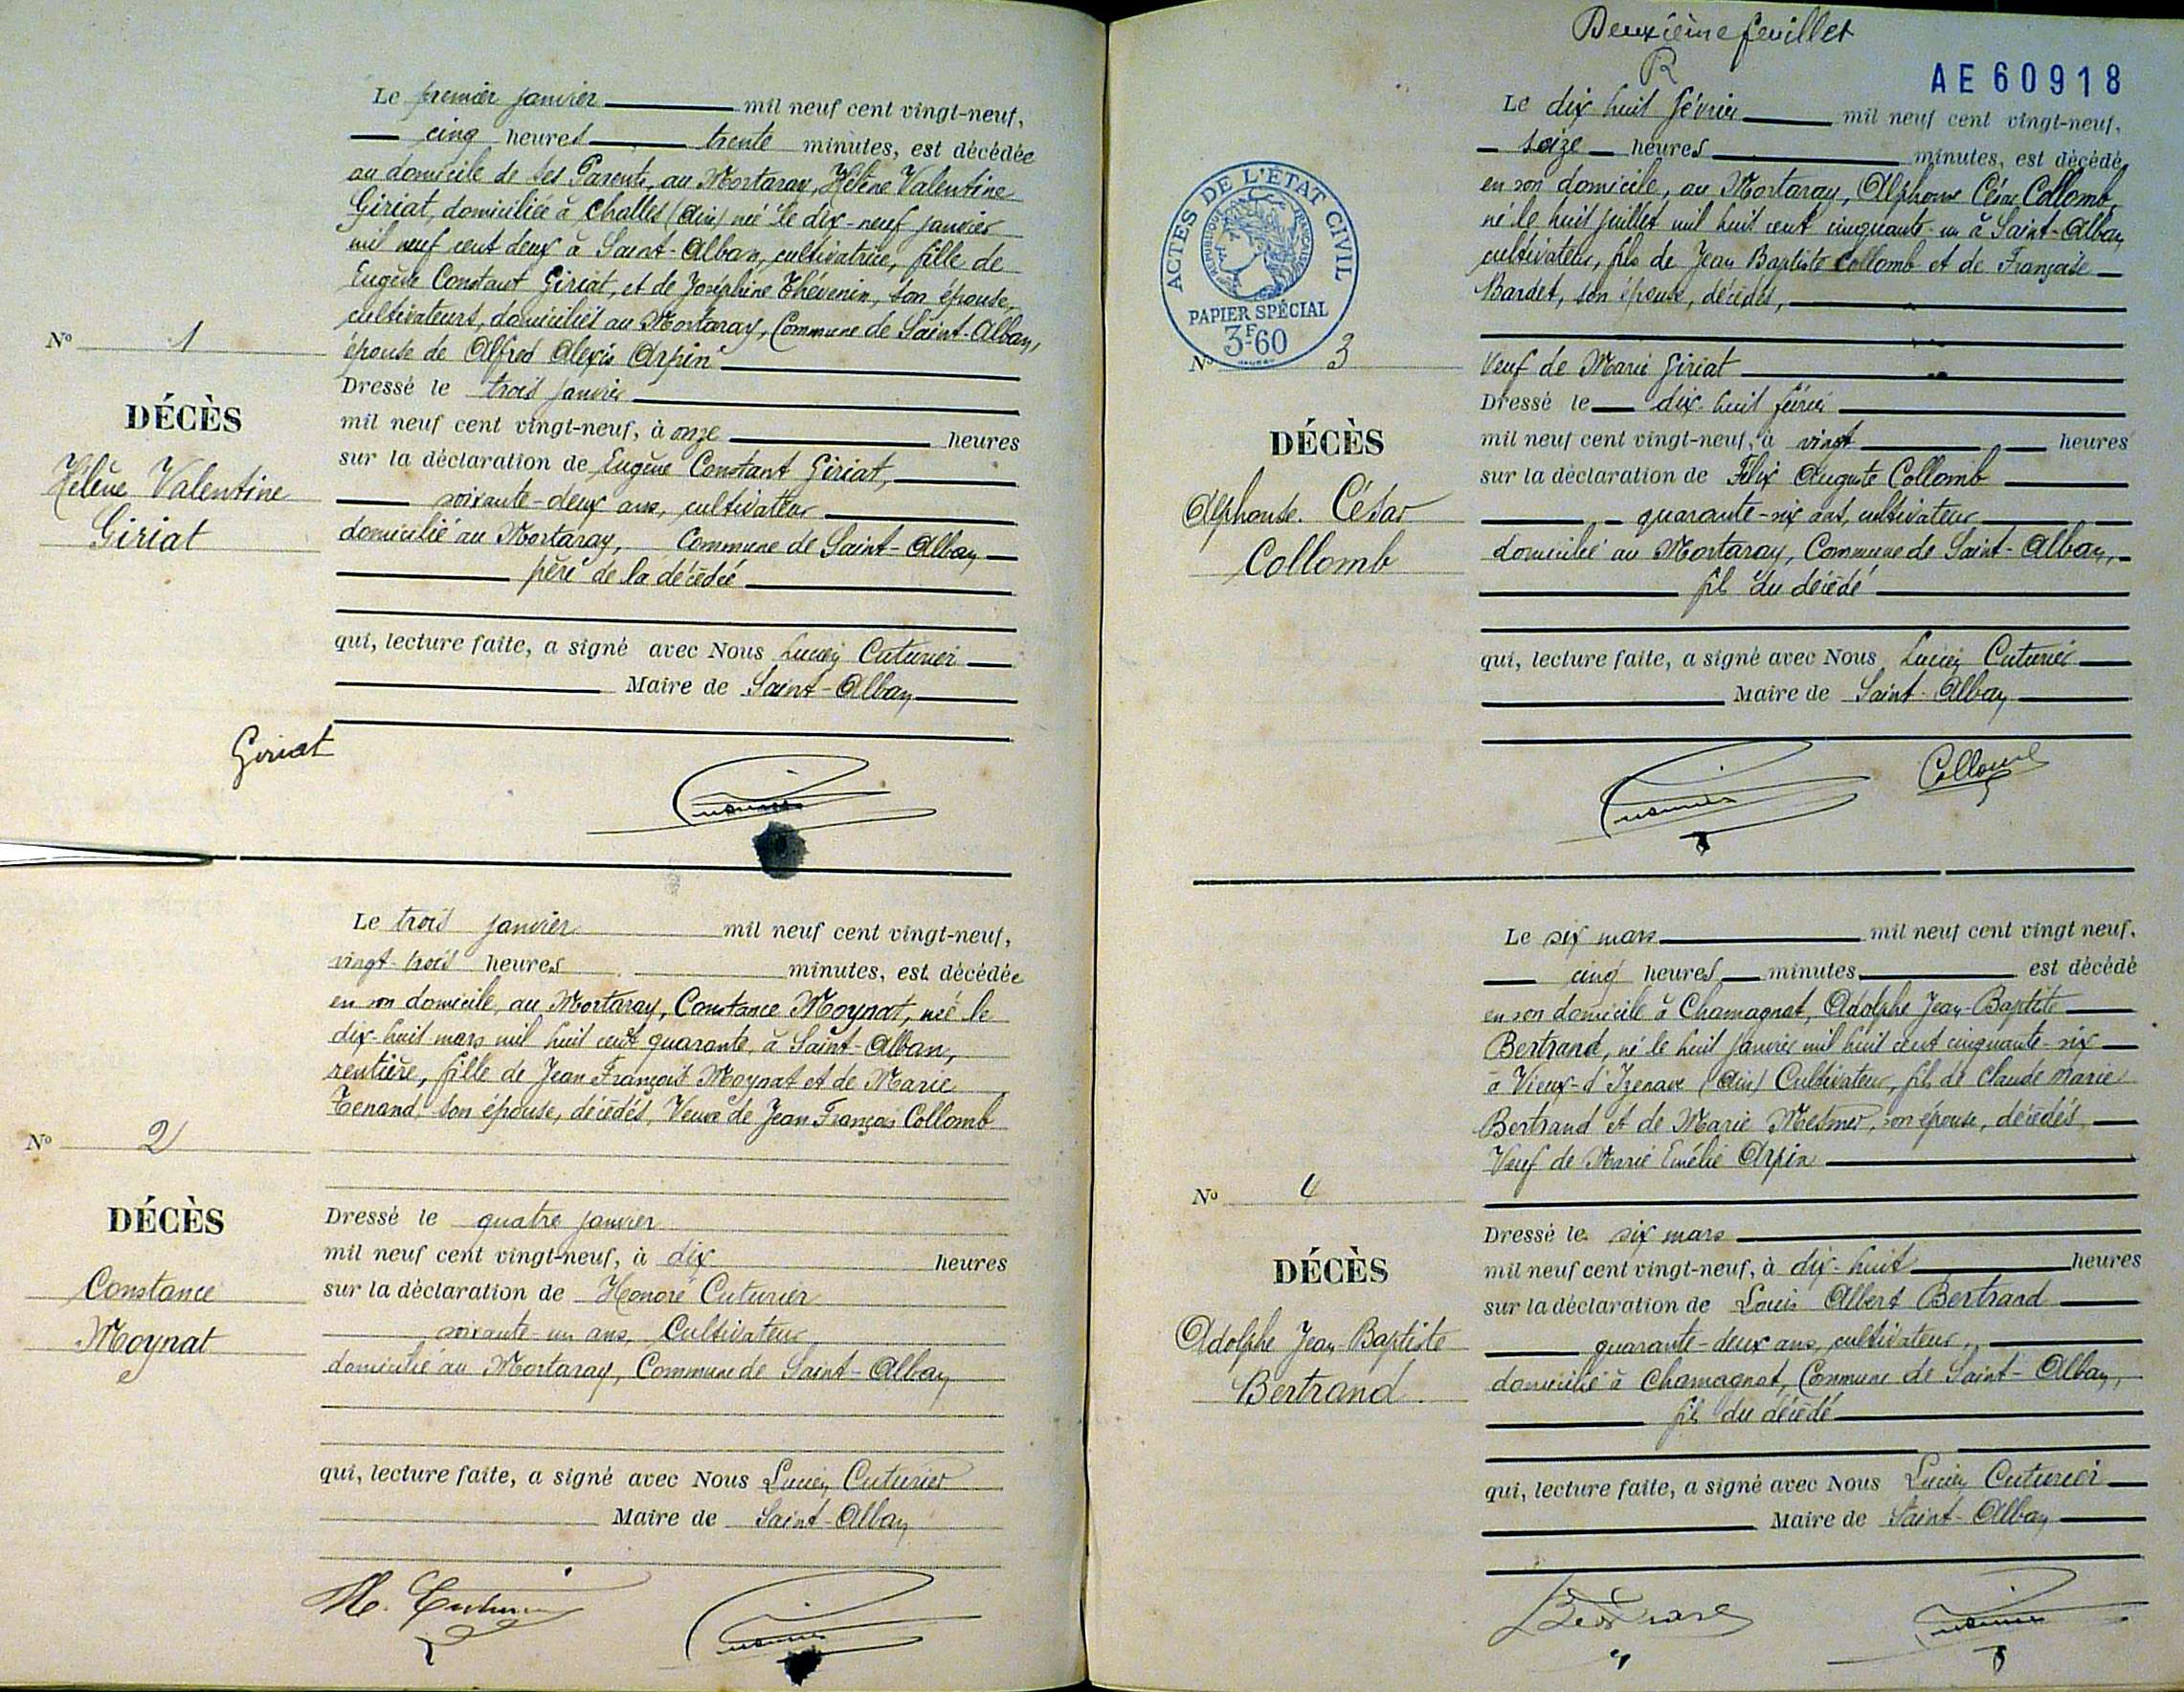 Le premier janvier mil neuf cent vingt-neuf,
cinq heures trente minutes, est décédée
au domicile de ses Parents, au Mortaray, Hélène Valentine
Giriat, domiciliée à Challes (Ain) née le dix-neuf janvier
mil neuf cent deux à Saint-Alban, cultivatrice, fille de
Eugène Constant Giriat, et de Joséphine Thévenin, son épouse,
cultivateurs, domiciliés au Mortaray, Commune de Saint-Alban,
épouse de Alfred Alexis Arpin
Dressé le trois janvier
mil neuf cent vingt-neuf, à onze heures
sur la déclaration de Eugène Constant Giriat,
soixante-deux ans, cultivateur
domicilié au Mortaray, Commune de Saint-Alban
père de la décédée
qui, lecture faite, a signé avec Nous Lucien Cuturier
Maire de Saint-Alban
No 1
DÉCÈS
Hélène Valentine
Giriat
Giriat
Le trois janvier mil neuf cent vingt-neuf,
vingt-trois heures minutes, est décédée
en son domicile, au Mortaray, Constance Moynat, née le
dix-huit mars mil huit cent quarante, à Saint-Alban,
rentière, fille de Jean François Moynat et de Marie
Tenand, son épouse, décédés, Veuve de Jean François Collomb
Dressé le quatre janvier
mil neuf cent vingt-neuf, à dix heures
sur la déclaration de Honoré Cuturier
soixante-un ans, Cultivateur
domicilié au Mortaray, Commune de Saint-Alban
qui, lecture faite, a signé avec Nous Lucien Cuturier
Maire de Saint-Alban
No 2
DÉCÈS
Constance
Moynat
Deuxième feuillet
R
AE 60918
ACTES DE L'ÉTAT CIVIL
RÉPUBLIQUE FRANÇAISE
PAPIER SPÉCIAL
3F60
Le dix huit février mil neuf cent vingt-neuf,
seize heures minutes, est décédé
en son domicile, au Mortaray, Alphonse César Collomb,
né le huit juillet mil huit cent cinquante-un à Saint-Alban
cultivateur, fils de Jean Baptiste Collomb et de Françoise
Bardet, son épouse, décédés,
Veuf de Marie Giriat
Dressé le dix-huit février
mil neuf cent vingt-neuf, à vingt heures
sur la déclaration de Félix Auguste Collomb
quarante-six ans, cultivateur
domicilié au Mortaray, Commune de Saint-Alban,
fils du décédé
qui, lecture faite, a signé avec Nous Lucien Cuturier
Maire de Saint-Alban
No 3
DÉCÈS
Alphonse César
Collomb
Collomb
Le six mars mil neuf cent vingt neuf,
cinq heures minutes est décédé
en son domicile à Chamagnat, Adolphe Jean-Baptiste
Bertrand, né le huit janvier mil huit cent cinquante-six
à Vieux-d'Izenave (Ain) Cultivateur, fils de Claude Marie
Bertrand et de Marie Mesmer, son épouse, décédés
Veuf de Marie Emélie Arpin
Dressé le six mars
mil neuf cent vingt-neuf, à dix-huit heures
sur la déclaration de Louis Albert Bertrand
quarante-deux ans, cultivateur,
domicilié à Chamagnat, Commune de Saint-Alban,
fils du décédé
qui, lecture faite, a signé avec Nous Lucien Cuturier
Maire de Saint-Alban
No 4
DÉCÈS
Adolphe Jean-Baptiste
Bertrand
Bertrand